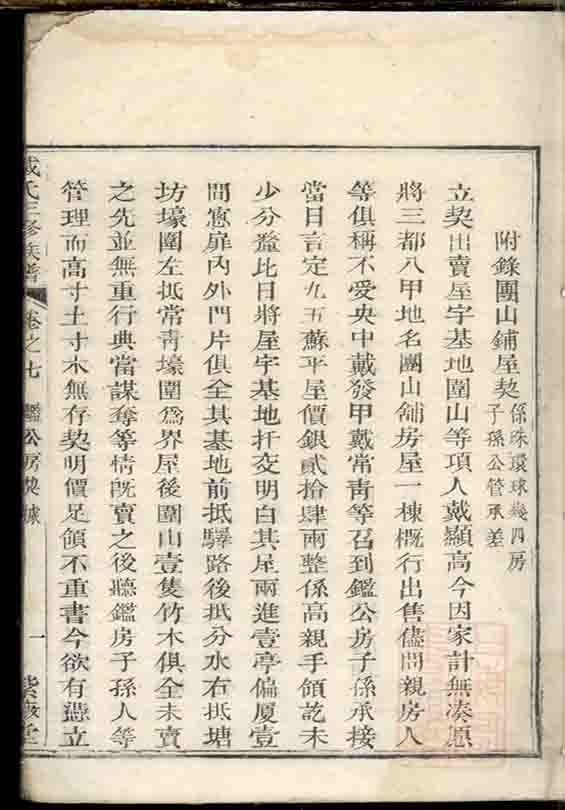 附錄團山鋪屋契 係珠環球幾四房
子孫公管承差
立契出賣屋宇基地圍山等項人戴顯高今因家計無凑愿
將三都八甲地名團山舖房屋一棟概行出售儘問親房人
等俱稱不受央中戴發甲戴常靑等召到鑑公房子係承接
當日言定九五蘇平屋價銀貳拾肆兩整係高親手領訖未
少分釐比日將屋宇基地扦交明白其屋兩進壹亭偏厦壹
間窻扉內外門片俱全其基地前抵驛路後抵分水右抵塘
坊壕圍左抵常靑壕圍爲界屋後圍山壹隻竹木俱全未賣
之先並無重行典當謀奪等情旣賣之後聽鑑房子孫人等
管理而高寸土寸木無存契明價足領不重書今欲有憑立
戴氏三修族譜 卷之七 鑑公房契據 一